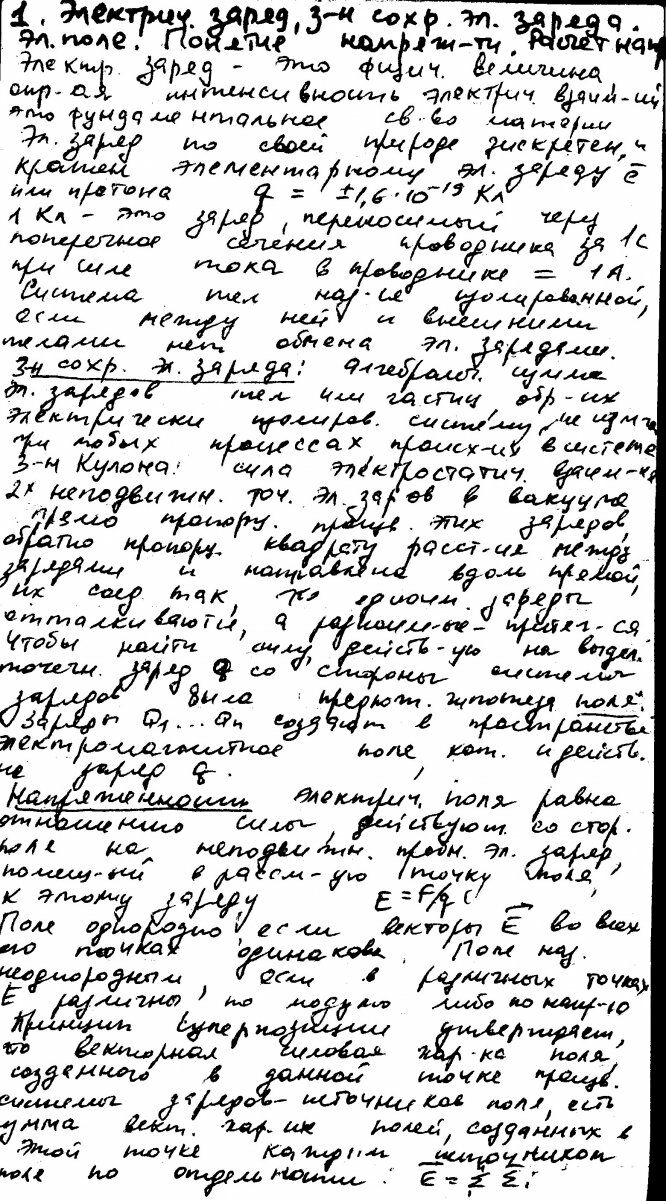 1. Электрич. заряд, з-н сохр. эл. заряда.
Эл. поле. Понятие напряж-ти. Расчет напр
Электр. заряд - это физич. величина
опр-ая интенсивность электрич. взаим-ий
это фундаментальное св-во материи
Эл. заряд по своей природе дискретен, и
кратен элементарному эл. заряду ē
или протона q = ±1,6·10⁻¹⁹ Кл
1 Кл - это заряд, переносимый через
поперечное сечения проводника за 1с
при силе тока в проводнике = 1А.
Система тел наз-ся изолированной,
если между ней и внешними
телами нет обмена эл. зарядами.
З-н сохр. эл. заряда: алгебраич. сумма
эл. зарядов тел или частиц обр-их
электрически изолиров. систему, не изм-ся
при любых процессах происх-их в системе
З-н Кулона: сила электростатич. взаим-ия
2х неподвижн. точ. эл. заров в вакууме
прямо пропорц. произв. этих зарядов,
обратно пропорц. квадрату расст-ие между
зарядами и направлена вдоль прямой,
их соед. так, что одноим. заряды
отталкиваются, а разноимен-ые - притяг-ся.
Чтобы найти силу, действ-ую на выдел.
точечн. заряд q со стороны системы
зарядов была предлож. гипотеза поля.
Заряды Q₁...Qn создают в пространстве
электромагнитное поле, кот. и действ.
на заряд q.
Напряженность электрич. поля равна
отношению силы, действующ. со стор.
поле на неподвижн. пробн. эл. заряд,
помещ-ый в рассм-ую точку поля,
к этому заряду E = F/q
Поле однородно если векторы E⃗ во всех
его точках одинакова. Поле наз.
неоднородным, если в различных точках
E различны по модулю либо по напр-ю
Принцип суперпозиции утверждает,
что векторная силовая хар-ка поля,
созданного в данной точке простр.
системы зарядов-источников поля, есть
сумма вект. хар-ик полей, созданных в
этой точке каждым источником
поле по отдельности: E⃗ = Σ E⃗i